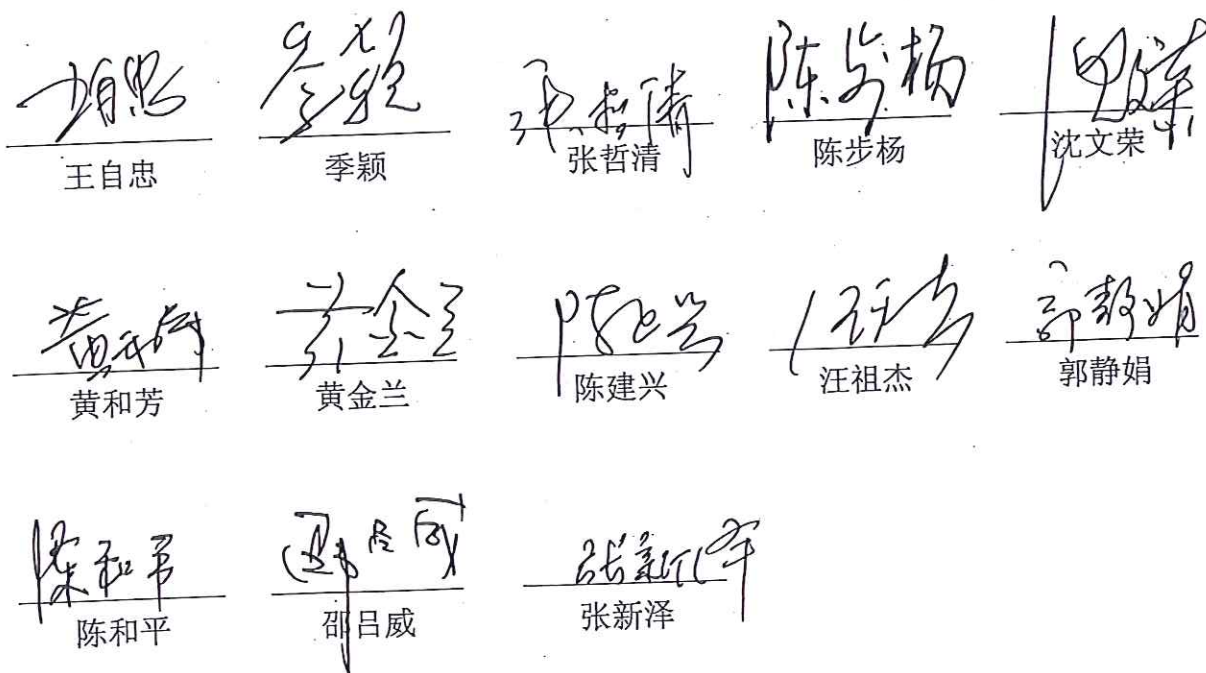 王自忠 季颖 张哲清 陈步杨 沈文荣
王自忠 季颖 张哲清 陈步杨 沈文荣
黄和芳 黄金兰 陈建兴 汪祖杰 郭静娟
黄和芳 黄金兰 陈建兴 汪祖杰 郭静娟
陈和平 邵吕威 张新泽
陈和平 邵吕威 张新泽